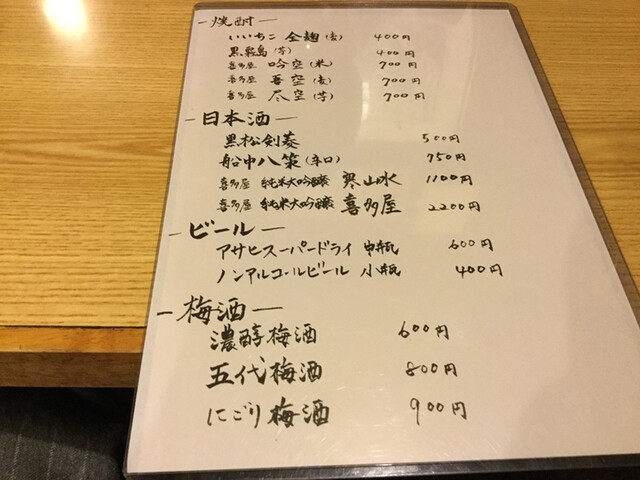 －焼酎－
いいちこ 全麹（麦） 400円
黒霧島（芋） 400円
喜多屋 吟空（米） 700円
喜多屋 吾空（麦） 700円
喜多屋 尽空（芋） 700円
－日本酒－
黒松剣菱 500円
船中八策（辛口） 750円
喜多屋 純米大吟醸 寒山水 1100円
喜多屋 純米大吟醸 喜多屋 2200円
－ビール－
アサヒスーパードライ 中瓶 600円
ノンアルコールビール 小瓶 400円
－梅酒－
濃醇梅酒 600円
五代梅酒 800円
にごり梅酒 900円